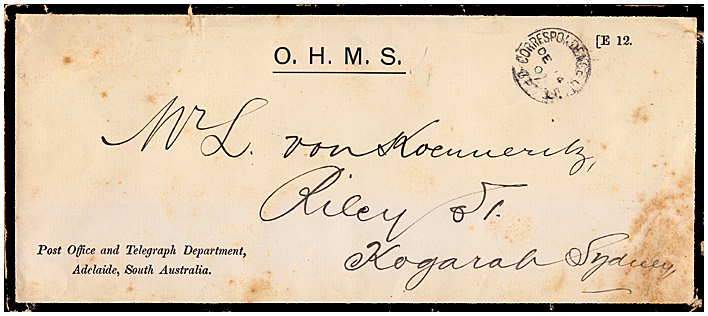 O. H. M. S.
[E 12.
CORRESPONDENCE
DE 14
07
Mr L. von Koenneritz,
Riley St.
Kogarah Sydney,
Post Office and Telegraph Department,
Adelaide, South Australia.